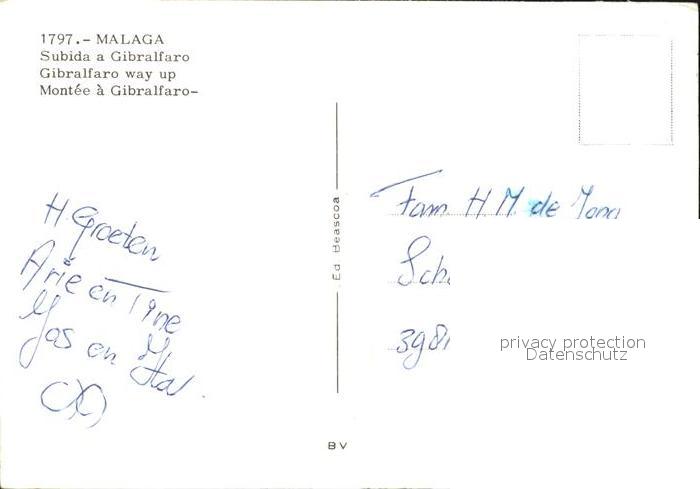 1797.- MALAGA
Subida a Gibralfaro
Gibralfaro way up
Montée à Gibralfaro-
H. Groeten
Arie en Tine
Jos en
Ed Beascoa
Fam H. M. de
Sch.
398
privacy protection
Datenschutz
BV